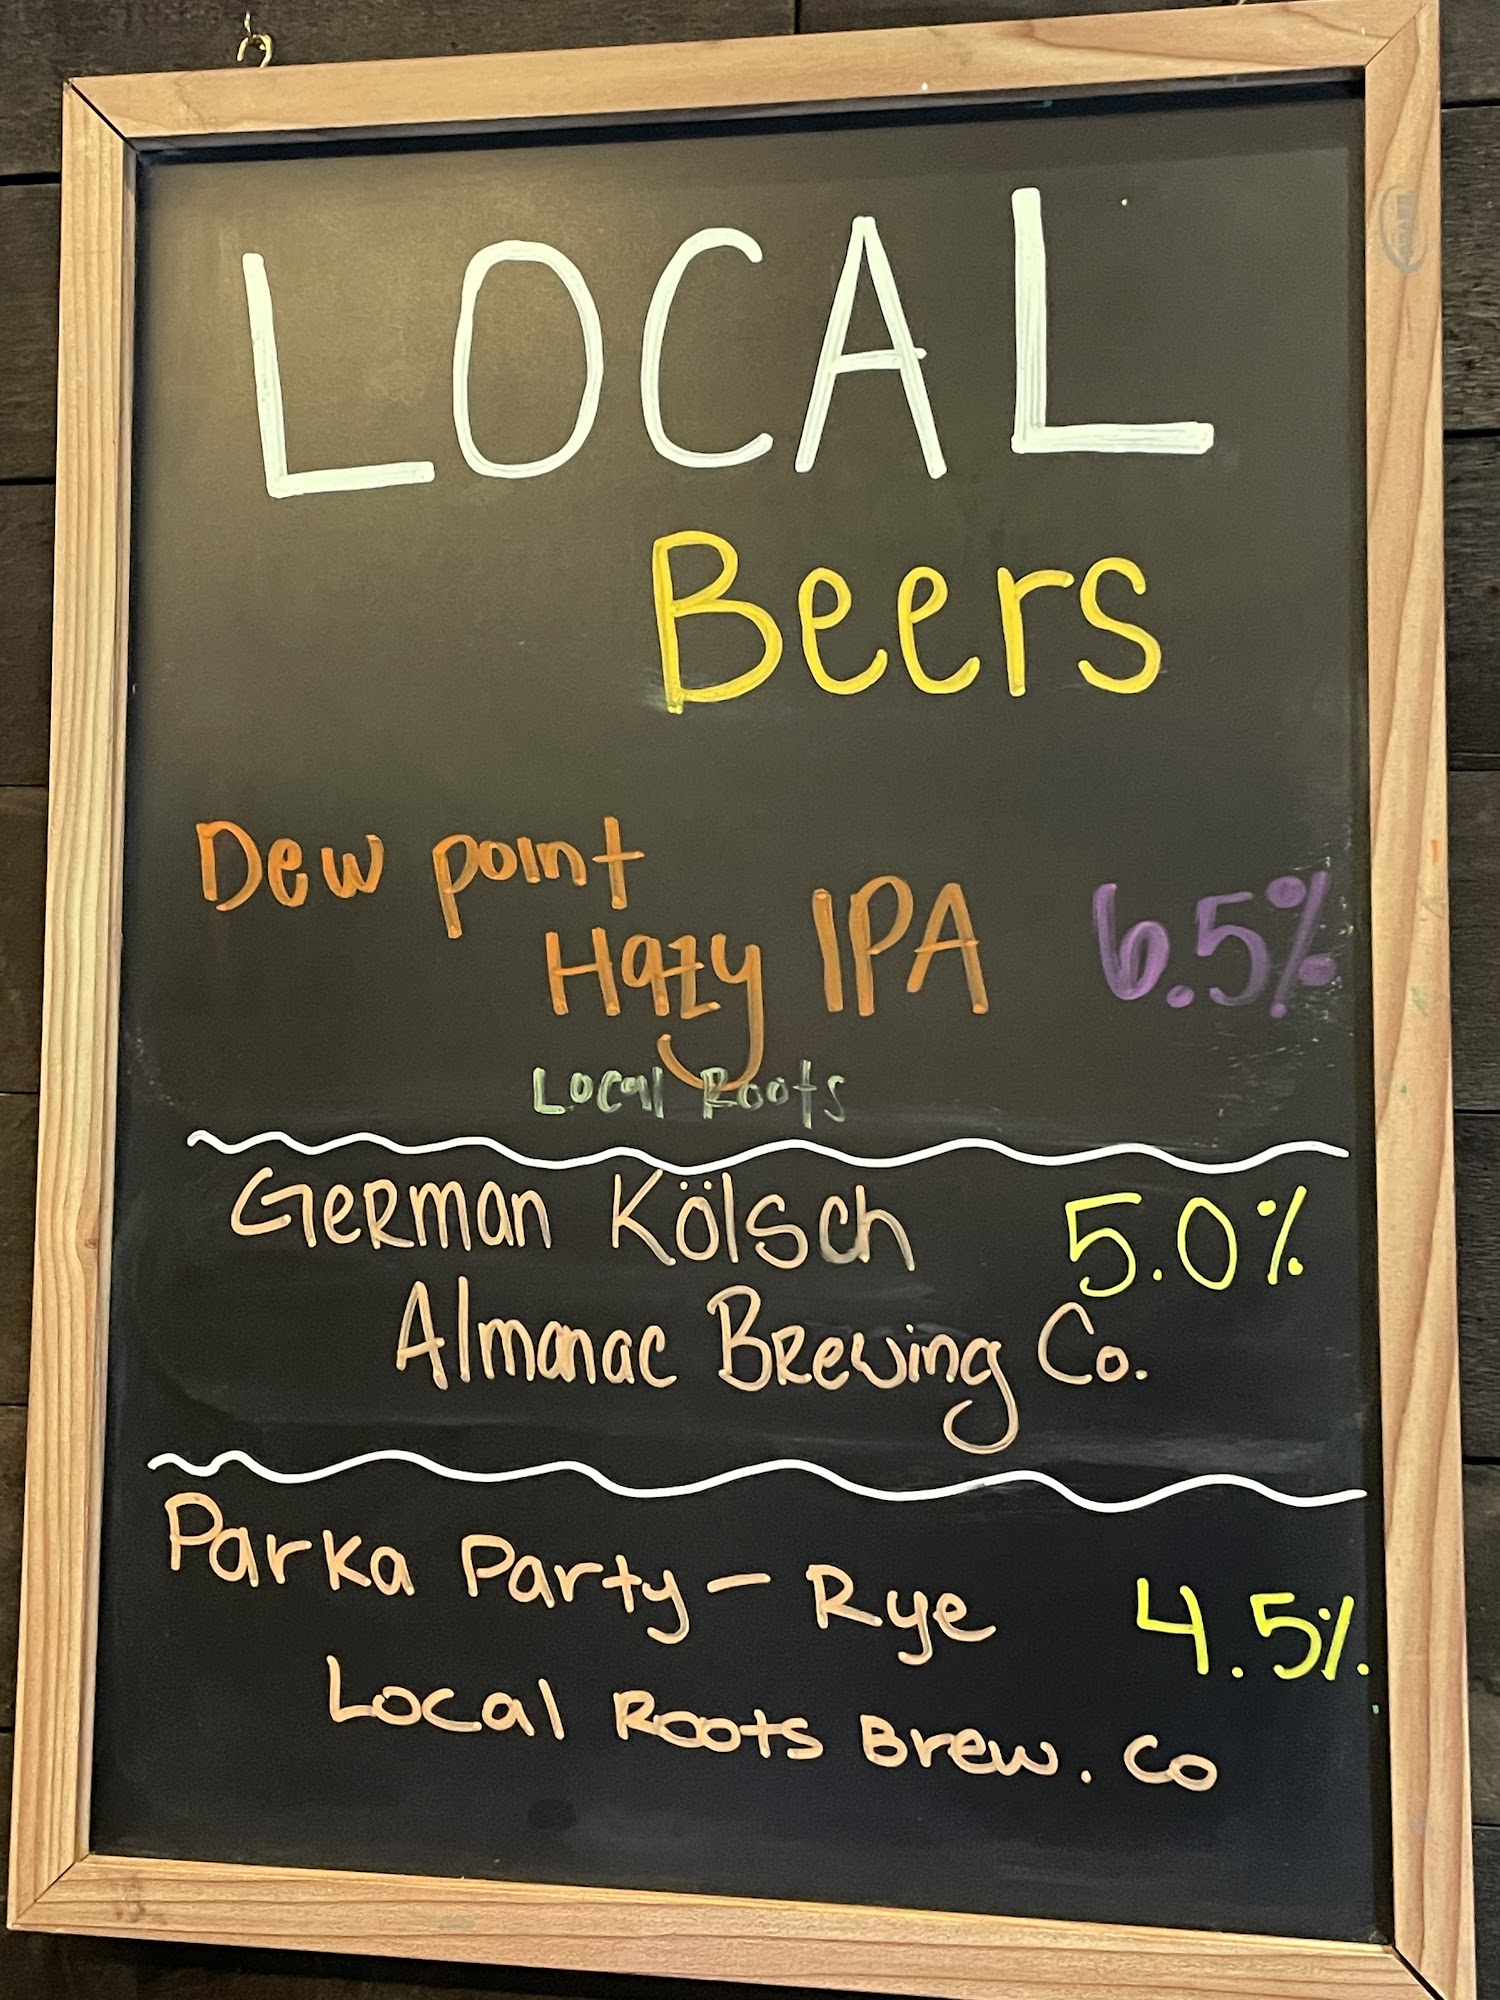 LOCAL
Beers
Dew point
Hazy IPA 6.5%
Local Roots
German Kölsch 5.0%
Almanac Brewing Co.
Parka Party - Rye 4.5%
Local Roots Brew. Co